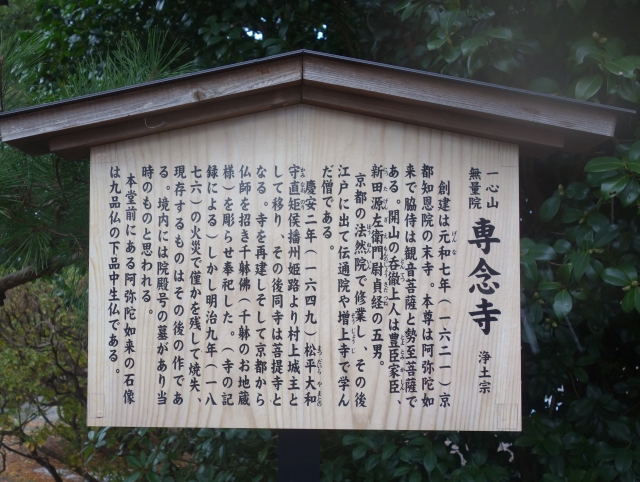 一心山
無量院
専念寺
浄土宗
創建は元和七年(一六二一)京
都知恩院の末寺。本尊は阿弥陀如
来で脇侍は観音菩薩と勢至菩薩で
ある。開山の呑徹上人は豊臣家臣、
新田源左衛門尉貞経の五男。
京都の法然院で修業 その後
江戸に出て伝通院や増上寺で学ん
だ僧である。
慶安二年(一六四九)松平大和
守直矩侯播州姫路より村上城主と
して移り、その後同寺は菩提寺と
なる。寺を再建しそして京都から
仏師を招き千躰佛(千躰のお地蔵
様)を彫らせ奉祀した。(寺の記
録による)しかし明治九年(一八
七六)の火災で僅かを残して焼失、
現存するものはその後の作であ
る。境内には院殿号の墓があり当
時のものと思われる。
本堂前にある阿弥陀如来の石像
は九品仏の下品中生仏である。